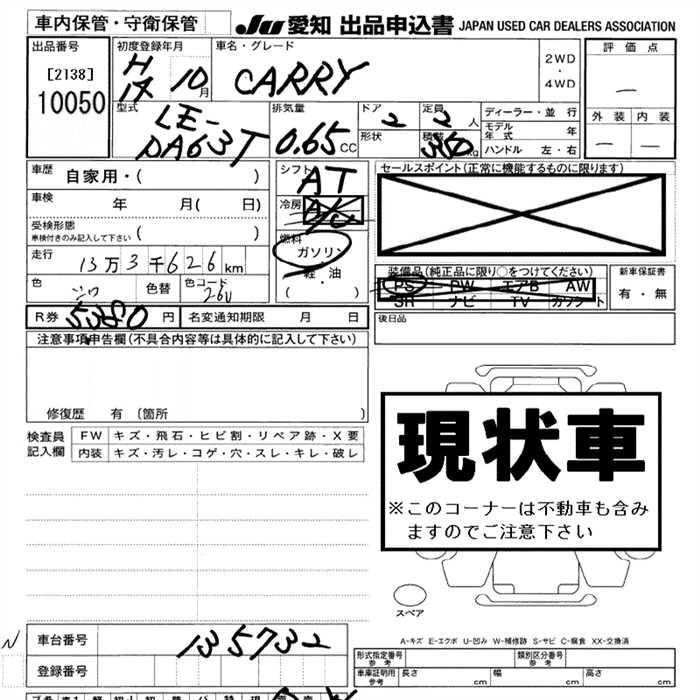 車内保管・守衛保管
JU 愛知 出品申込書 JAPAN USED CAR DEALERS ASSOCIATION
出品番号
[2138]
10050
初度登録年月
H 17 10月
車名・グレード
CARRY
2WD
・
4WD
評価点
—
外装 内装
— —
型式
LE-
DA63T
排気量
0.65 CC
ドア
2
形状
定員
2 人
積載
350 kg
ディーラー・並行
モデル年式 年
ハンドル 左・右
車歴
自家用・( )
車検
年 月( 日)
受検形態
車検付きのみ記入して下さい ( )
走行
13万3千626km
色
シロ
色替
色コード
26U
シフト
AT
冷房
A/C
燃料
ガソリン
軽・油
( )
セールスポイント(正常に機能するものに限ります)
装備品(純正品に限り○をつけてください)
PS PW エアB AW
SR ナビ TV カワシート
新車保証書
有・無
後日品
R券 5380 円
名変通知期限 月 日
注意事項申告欄(不具合内容等は具体的に記入して下さい)
修復歴 有 〔箇所 〕
検査員
記入欄
FW キズ・飛石・ヒビ割・リペア跡・X要
内装 キズ・汚レ・コゲ・穴・スレ・キレ・破レ
現状車
※このコーナーは不動車も含み
ますのでご注意下さい
スペア
A-キズ E-エクボ U-凹み W-補修跡 S-サビ C-腐食 XX-交換済
N
車台番号
135732
登録番号
形式指定番号
参考
類別区分番号
参考
車庫証明用
参考
長さ cm
幅 cm
高さ cm